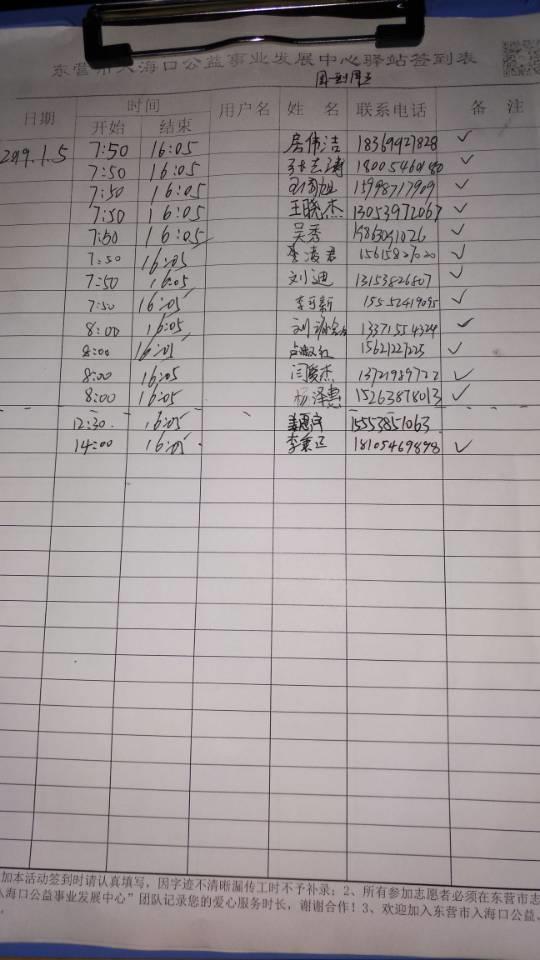 东营市入海口公益事业发展中心驿站签到表
周一到周五
日期 时间 用户名 姓 名 联系电话 备 注
开始 结束
2019.1.5 7:50 16:05 居伟洁 18369427828 ✓
7:50 16:05 18005460180 ✓
7:50 16:05 15998717909 ✓
7:50 16:05 王晓杰 13053972067 ✓
7:50 16:05 吴秀 ✓
7:50 16:05 李凌君 15615827020 ✓
7:50 16:05 刘迪 13153826807 ✓
7:50 16:05 李可新 15552419095 ✓
8:00 16:05 刘 13371554324 ✓
8:00 16:05 15621227225 ✓
8:00 16:05 闫爱杰 13721989722 ✓
8:00 16:05 杨泽惠 15263878013 ✓
12:30 16:05 15553851063
14:00 16:05 李 18105469898 ✓
加本活动签到时请认真填写，因字迹不清晰漏传工时不予补录；2、所有参加志愿者必须在东营市志
入海口公益事业发展中心”团队记录您的爱心服务时长，谢谢合作！3、欢迎加入东营市入海口公益、